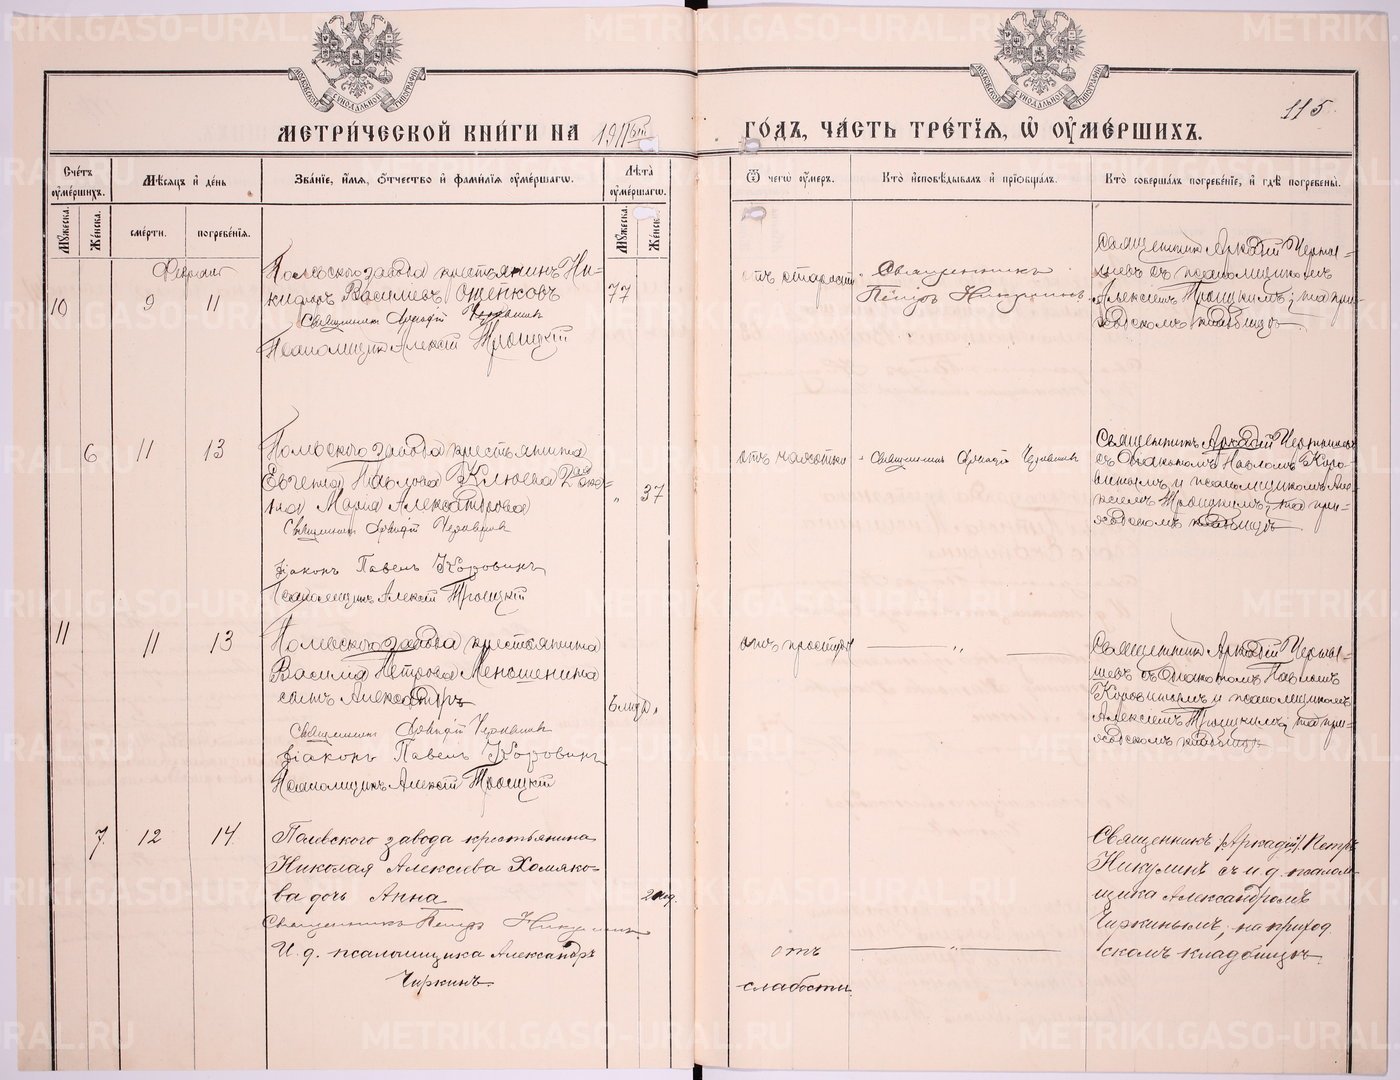 115
МЕТРИ́ЧЕСКОЙ КНИ́ГИ НА 1911 ГО́ДЪ, ЧА́СТЬ ТРЕ́ТІѦ, Ѡ҆ ОУ҆МЕ́РШИХЪ.
Сче́тъ оу҆ме́ршихъ.
Мѣ́сяцъ и҆ де́нь
Зва́ніе, и҆́мя, ѻ҆́тчество и҆ фами́лія оу҆ме́ршагѡ.
Лѣ́та оу҆ме́ршагѡ.
Ѿ чегѡ̀ оу҆́меръ.
Кто̀ и҆сповѣ́дывалъ и҆ пріѻбща́лъ.
Кто̀ соверша́лъ погребе́ніе, и҆ гдѣ̀ погребены̀.
Мꙋ́жеска.
Же́нска.
сме́рти.
погребе́нія.
Мꙋ́жеска.
Же́нск.
Февраль
10
9
11
Полевского завода крестьянинъ Ни-
кифоръ Василіевъ Ощепковъ
Священникъ Аркадій
Псаломщикъ Алексій Троицкій
77
отъ старости
Священникъ
Петръ Никулинъ
Священникъ Аркадій Черны-
шевъ съ псаломщикомъ
Алексіемъ Троицкимъ, на при-
ходскомъ кладбищѣ
6
11
13
Полевского завода крестьянина
Евгенія Павлова Клюева
Марія Александрова
Священникъ Аркадій
діаконъ Павелъ Коровинъ
Псаломщикъ Алексій Троицкій
"
37
отъ чахотки
Священникъ Аркадій
Священникъ Аркадій Чернышевъ
съ діакономъ Павломъ Коро-
винымъ и псаломщикомъ Але-
ксіемъ Троицкимъ, на при-
ходскомъ кладбищѣ
11
11
13
Полевского завода крестьянина
Василія Петрова Меньшенина
сынъ Александръ
Священникъ Аркадій
діаконъ Павелъ Коровинъ
Псаломщикъ Алексій Троицкій
отъ простуды
"
Священникъ Аркадій Черны-
шевъ съ діакономъ Павломъ
Коровинымъ и псаломщикомъ
Алексіемъ Троицкимъ, на при-
ходскомъ кладбищѣ
7
12
14
Полевского завода крестьянина
Николая Алексѣева Хомяко-
ва дочь Анна
Священникъ Петръ Никулинъ
И. д. псаломщика Александръ
Чиркинъ
2 нед.
отъ
слабости
"
Священникъ /Аркадій/ Петръ
Никулинъ съ и. д. псалом-
щика Александромъ
Чиркинымъ, на приход
скомъ кладбищѣ.
METRIKI.GASO-URAL.RU